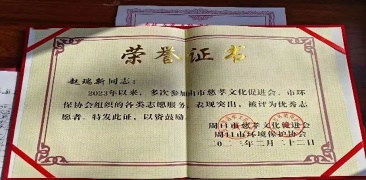 荣誉证书
赵瑞新同志：
2023年以来，多次参加由市慈孝文化促进会、市环
保协会组织的各类志愿服务，表现突出，被评为优秀志
愿者。特发此证，以资鼓励。
周口市慈孝文化促进会
周口市环境保护协会
二〇二三年二月二十二日